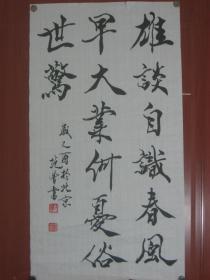 雄談自識春風
早大業何憂俗
世驚
歲乙酉於北京